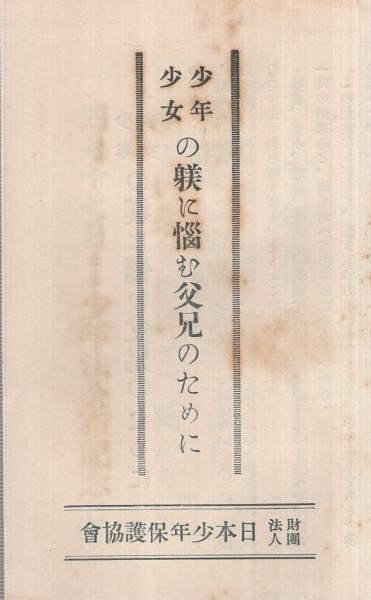 少年少女の躾に悩む父兄のために
財團法人日本少年保護協會